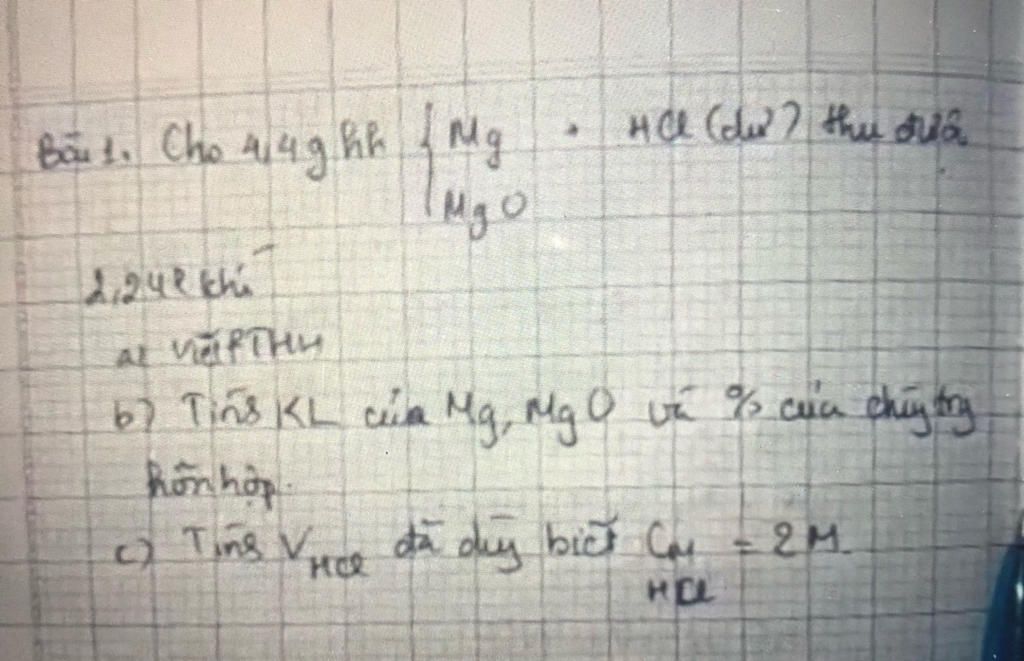 Bài 1. Cho 4,4g hh { Mg + HCl (dư) thu được
MgO
2,24l khí
a) Viết PTHH
b) Tính KL của Mg, MgO và % của chúng trg
hỗn hợp.
c) Tính V HCl đã dùng biết CM HCl = 2M.